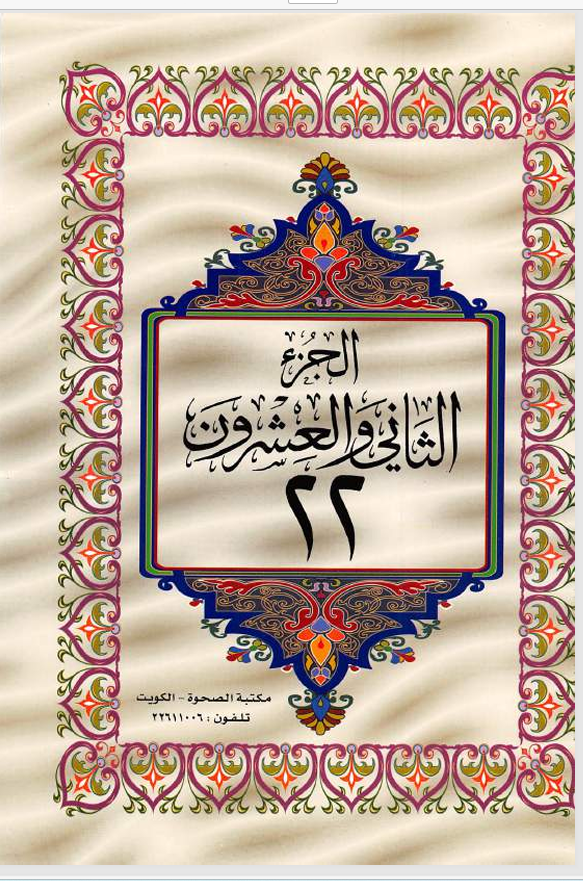 الجزء
الثاني والعشرون
٢٢
مكتبة الصحوة - الكويت
تلفون : ٢٢٦١١٠٠٦